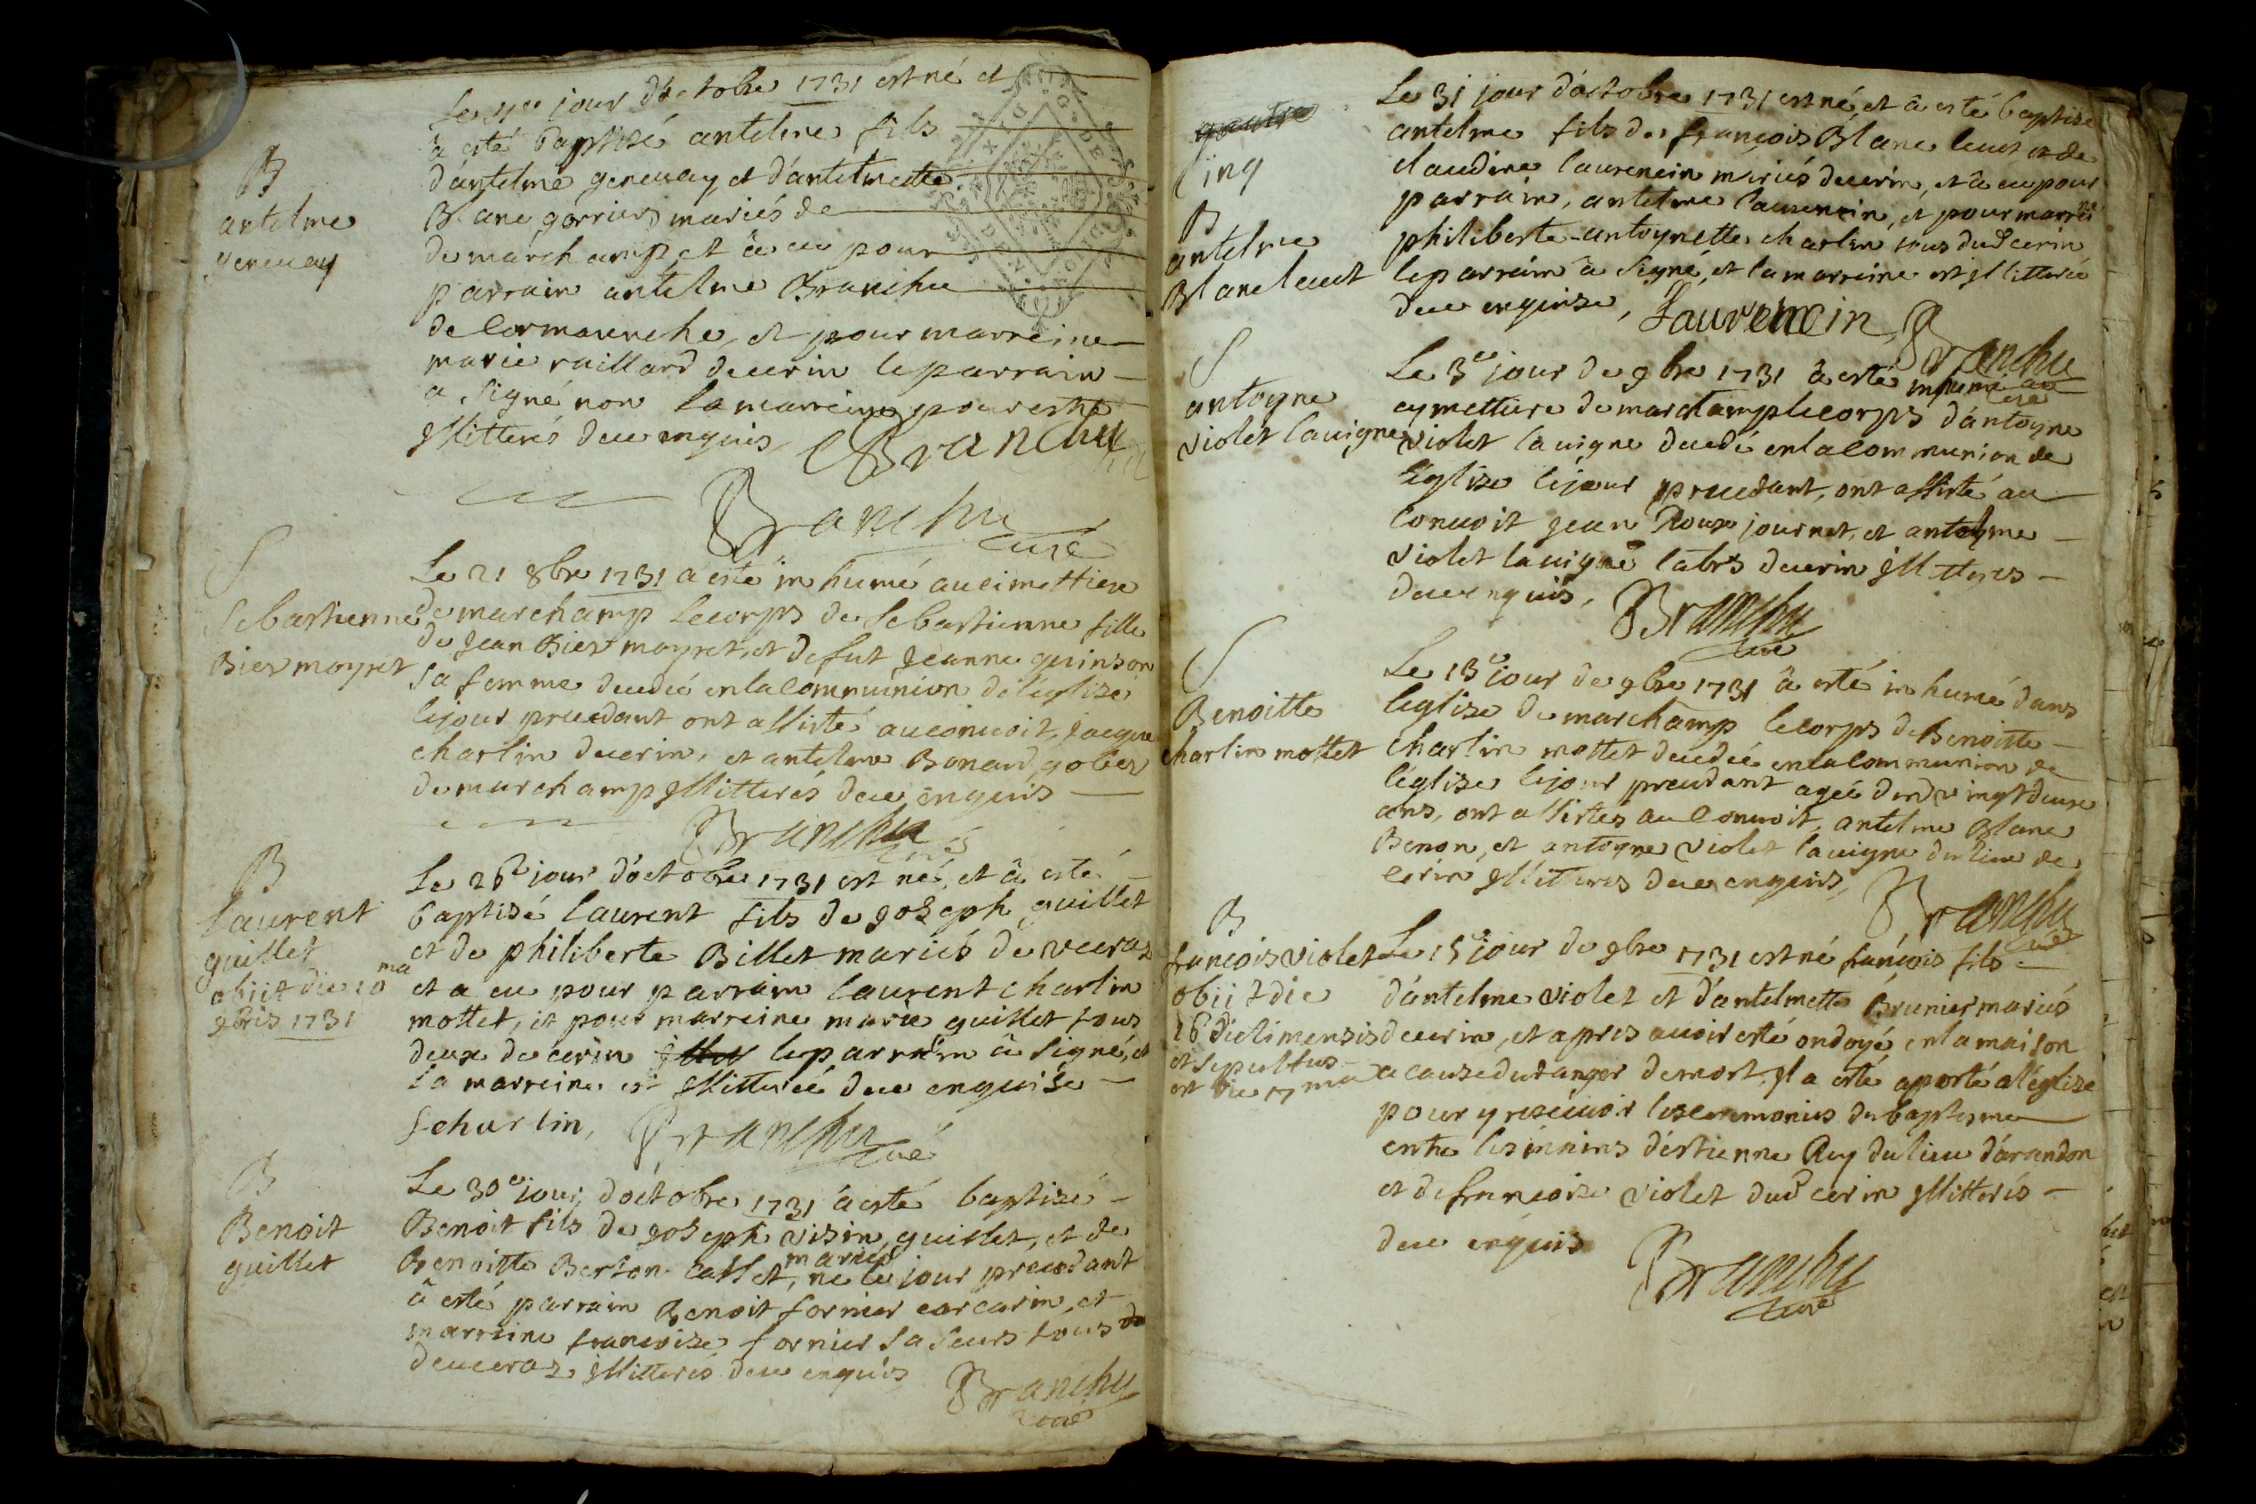 B
antelme
genevay
Le jour d'octobre 1731 est né et
à esté baptisé antelme fils
d'antelme genevay et d'antelmette
Blanc gorrier mariés de
de marchamp et à eu pour
parrain antelme Branchu
de Cormaranche, et pour marreine
marie raillard de cerin le parrain
a signé non la marreine pour estre
illitterés de ce enquis, Branchu
Branchu
curé
S
Sebastienne
Bier moyret
Le 21 8bre 1731 a esté inhumé au cimettiere
de marchamp le corps de Sebastienne fille
de Jean Bier moyret, et de fut Jeanne quinson
sa femme decedée en la communion de l'église
le jour precedant ont assisté au convoit, jacque
charlin de cerin, et antelme Bonard golier
de marchamp illitterés de ce enquis
Branchu
curé
B
Laurent
guillet
obiit die 10 ma
9bris 1731
Le 26e jour d'octobre 1731 est né, et à esté
baptisé laurent fils de Joseph guillet
et de philiberte Billet mariés de veeraz
et a eu pour parrain laurent charlin
mottet, et pour marreine marie guillet tous
deux de cerin le parrain à signé, et
la marreine est illitterée de ce enquise
fcharlin, Branchu
curé
B
Benoit
guillet
Le 30e jour d'octobre 1731 à esté baptisé
Benoit fils de Joseph visin guillet, et de
Benoitte Berton callet, mariés né le jour precedant
à esté parrain Benoit fornier carcarin, et
marreine françoise fornier sa seurs tous de
de veeraz illitterés de ce enquis
Branchu
curé
ing
B
antelme
Blanc leeut
Le 31 jour d'octobre 1731 est né, et à esté baptisé
antelme fils de françois Blanc leeut et de
claudine laurencin mariés de cerin, et à eu pour
parrain, antelme laurencin, et pour marreine
philiberte antoynette charlin, tous dud cerin
le parrain à signé, et la marreine est illitterée
de ce enquise, Laurencin Branchu
curé
S
antoyne
violet lavigne
Le 3e jour de 9bre 1731 à esté inhumé au
cymettiere de marchamp le corps d'antoyne
violet lavigne decedé en la communion de
l'église le jour precedant, ont assisté au
convoit jean Roux journet, et antelme
violet lavigne labrs de cerin illitterés
de ce enquis, Branchu
curé
S
Benoitte
charlin mottet
Le 13e jour de 9bre 1731 à esté inhumé dans
l'eglise de marchamp le corps de Benoitte
charlin mottet decedée en la communion de
l'église le jour precedant agée d'en vingt deux
ans, ont assistés au convoit, antelme Blanc
Benon, et antoyne violet lavigne du lieu de
cerin illitterés de ce enquis, Branchu
curé
B
françois violet
obiit die
16 dicti mensis
et sepultus
est die 17 ma
Le 15e jour de 9bre 1731 est né françois fils
d'antelme violet et d'antelmette Brunier mariés
de cerin, et apres avoir esté ondoyé en la maison
a cause du danger de mort, il a esté aporté a l'église
pour y recevoir les ceremonies du baptesme
entre les mains d'estienne Rey du lieu d'arandon
et de françoise violet dud cerin illitterés
de ce enquis
Branchu
curé